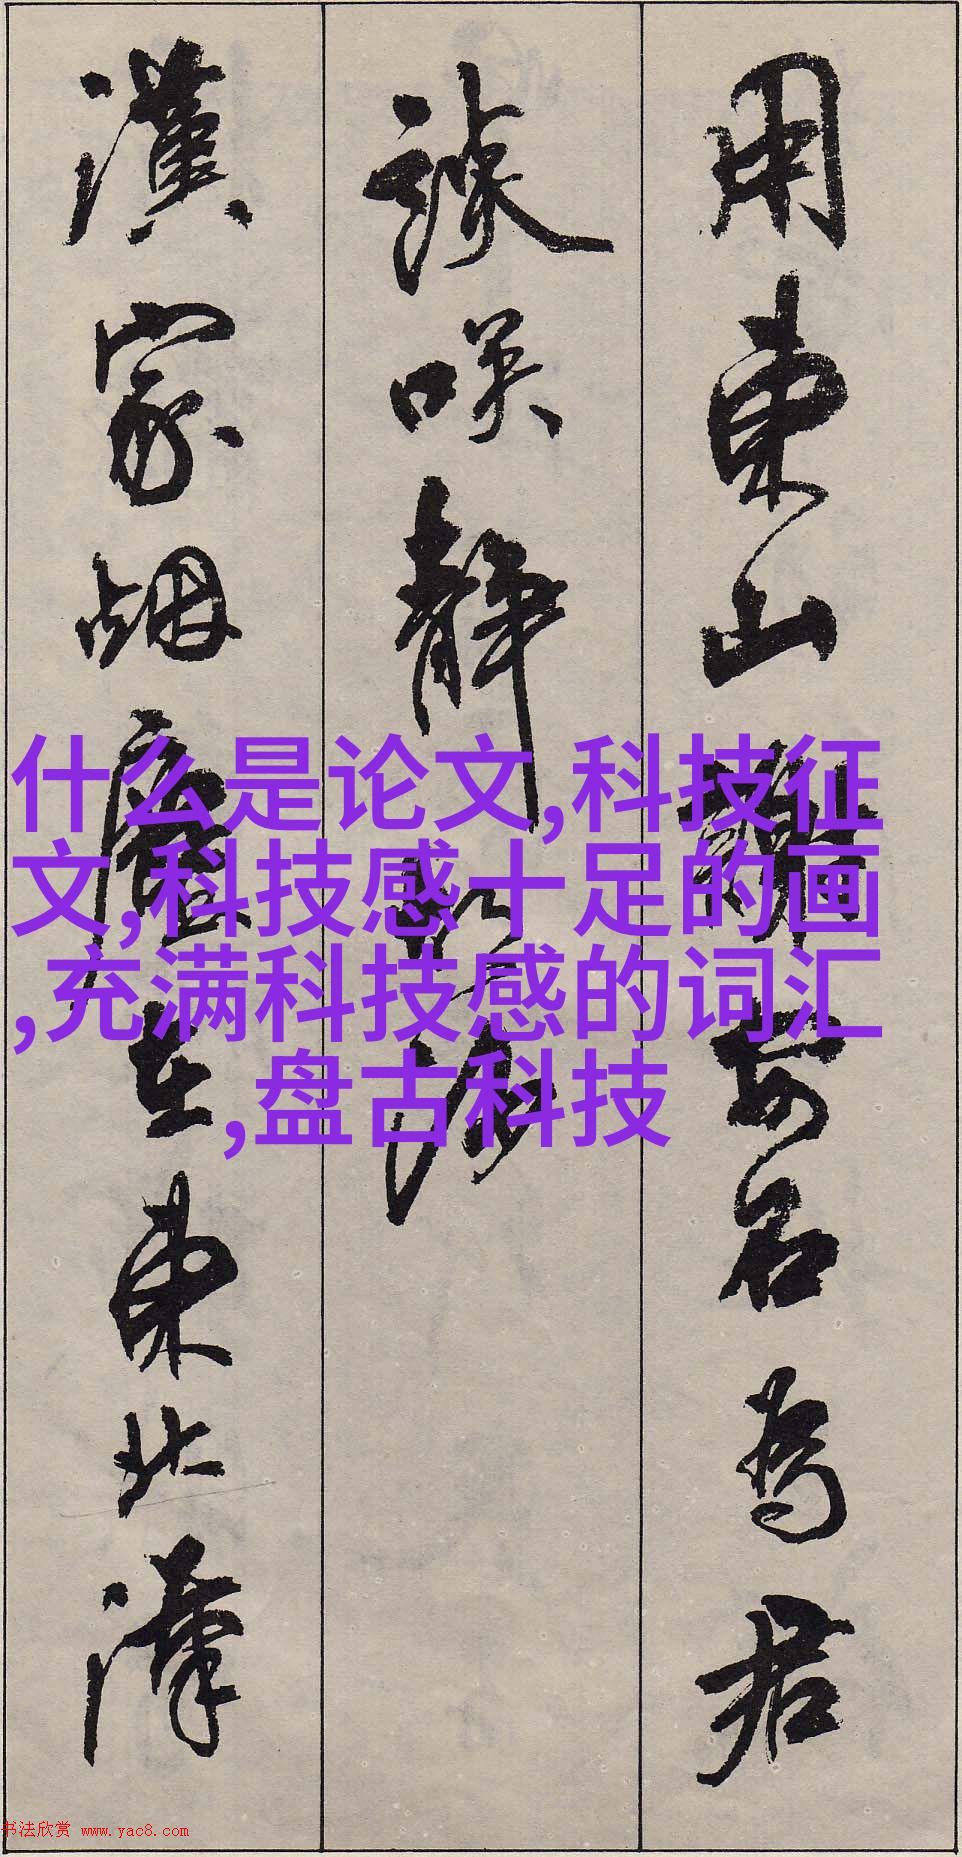 用東山謝安石為君
談咲静胡沙
漢家烟塵在東北漢
什么是论文,科技征
文,科技感十足的画
,充满科技感的词汇
,盘古科技
书法欣赏 www.yac8.com